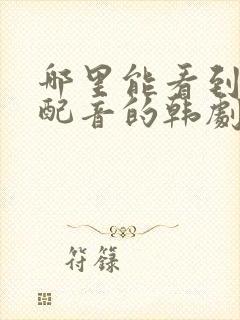 哪里能看到
配音的韩劇
符籙